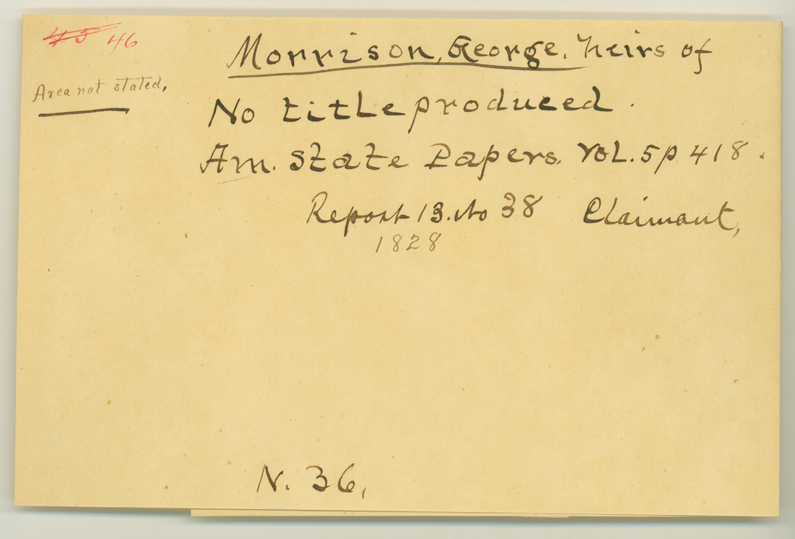 45 46
Area not stated,
Morrison, George, heirs of
No title produced.
Am. State Papers. Vol. 5 p 418.
Report 13. No 38 Claimant,
1828
N. 36,